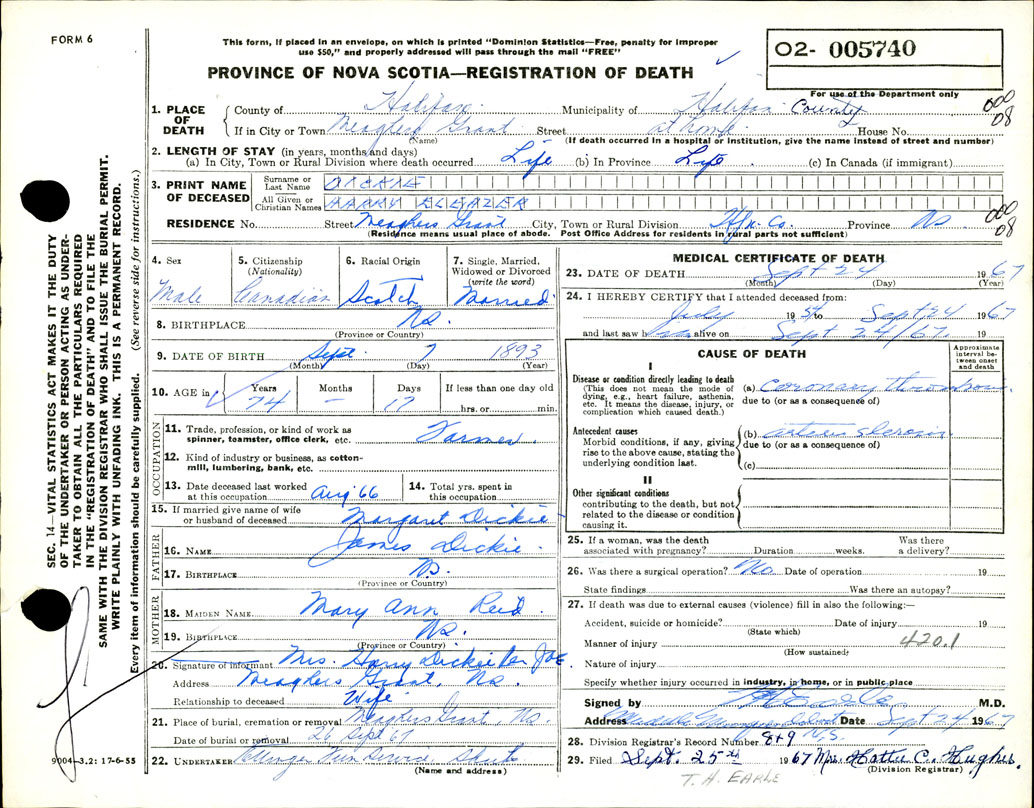 FORM 6
This form, if placed in an envelope, on which is printed "Dominion Statistics—Free, penalty for improper
use $50," and properly addressed will pass through the mail "FREE"
02- 005740
PROVINCE OF NOVA SCOTIA—REGISTRATION OF DEATH
For use of the Department only
1. PLACE OF DEATH County of Halifax Municipality of Halifax County 000
If in City or Town Meaghers Grant Street at home House No. 08
(Name) (If death occurred in a hospital or institution, give the name instead of street and number)
2. LENGTH OF STAY (in years, months, and days)
(a) In City, Town or Rural Division where death occurred Life (b) In Province Life (c) In Canada (if immigrant)
3. PRINT NAME OF DECEASED Surname or Last Name DICKIE
All Given or Christian Names HARRY ELEAZER
RESIDENCE No. Street Meaghers Grant City, Town or Rural Division Hfx. Co. Province NS 000 08
(Residence means usual place of abode. Post Office Address for residents in rural parts not sufficient)
SEC. 14—VITAL STATISTICS ACT MAKES IT THE DUTY
OF THE UNDERTAKER OR PERSON ACTING AS UNDER-
TAKER TO OBTAIN ALL THE PARTICULARS REQUIRED
IN THE "REGISTRATION OF DEATH" AND TO FILE THE
SAME WITH THE DIVISION REGISTRAR WHO SHALL ISSUE THE BURIAL PERMIT.
WRITE PLAINLY WITH UNFADING INK. THIS IS A PERMANENT RECORD.
Every item of information should be carefully supplied. (See reverse side for instructions.)
4. Sex Male
5. Citizenship (Nationality) Canadian
6. Racial Origin Scotch
7. Single, Married, Widowed or Divorced (write the word) Married
8. BIRTHPLACE NS.
(Province or Country)
9. DATE OF BIRTH Sept. 7 1893
(Month) (Day) (Year)
10. AGE in Years Months Days If less than one day old
74 - 17 hrs. or min.
OCCUPATION
11. Trade, profession, or kind of work as
spinner, teamster, office clerk, etc. Farmer
12. Kind of industry or business, as cotton-
mill, lumbering, bank, etc.
13. Date deceased last worked
at this occupation Aug 66
14. Total yrs. spent in
this occupation
15. If married give name of wife
or husband of deceased Margaret Dickie
FATHER
16. NAME James Dickie
17. BIRTHPLACE NS.
(Province or Country)
MOTHER
18. MAIDEN NAME Mary Ann Reid
19. BIRTHPLACE NS.
(Province or Country)
20. Signature of informant Mrs. Harry Dickie Per JOE
Address Meaghers Grant, NS.
Relationship to deceased Wife
21. Place of burial, cremation or removal Meaghers Grant, NS.
Date of burial or removal 26 Sept 67
22. UNDERTAKER
(Name and address)
9004—3.2: 17-6-55
MEDICAL CERTIFICATE OF DEATH
23. DATE OF DEATH Sept 24 1967
(Month) (Day) (Year)
24. I HEREBY CERTIFY that I attended deceased from:
July 19 to Sept 24 1967
and last saw him alive on Sept 24/67 19
CAUSE OF DEATH
Approximate interval between onset and death
I
Disease or condition directly leading to death
(This does not mean the mode of
dying, e.g., heart failure, asthenia,
etc. It means the disease, injury, or
complication which caused death.)
(a) coronary thrombosis
due to (or as a consequence of)
Antecedent causes
Morbid conditions, if any, giving
rise to the above cause, stating the
underlying condition last.
(b)
due to (or as a consequence of)
(c)
II
Other significant conditions
contributing to the death, but not
related to the disease or condition
causing it.
25. If a woman, was the death
associated with pregnancy? Duration weeks. Was there a delivery?
26. Was there a surgical operation? No Date of operation 19
State findings Was there an autopsy?
27. If death was due to external causes (violence) fill in also the following:—
Accident, suicide or homicide? Date of injury 19
(State which)
Manner of injury 420.1
(How sustained)
Nature of injury
Specify whether injury occurred in industry, in home, or in public place
Signed by TH Earle M.D.
Address Middle Musquodoboit Date Sept 24 1967
N.S.
28. Division Registrar's Record Number 849
29. Filed Sept. 25th 1967 Mrs. Hattie C. Hughes.
(Division Registrar)
T. H. EARLE